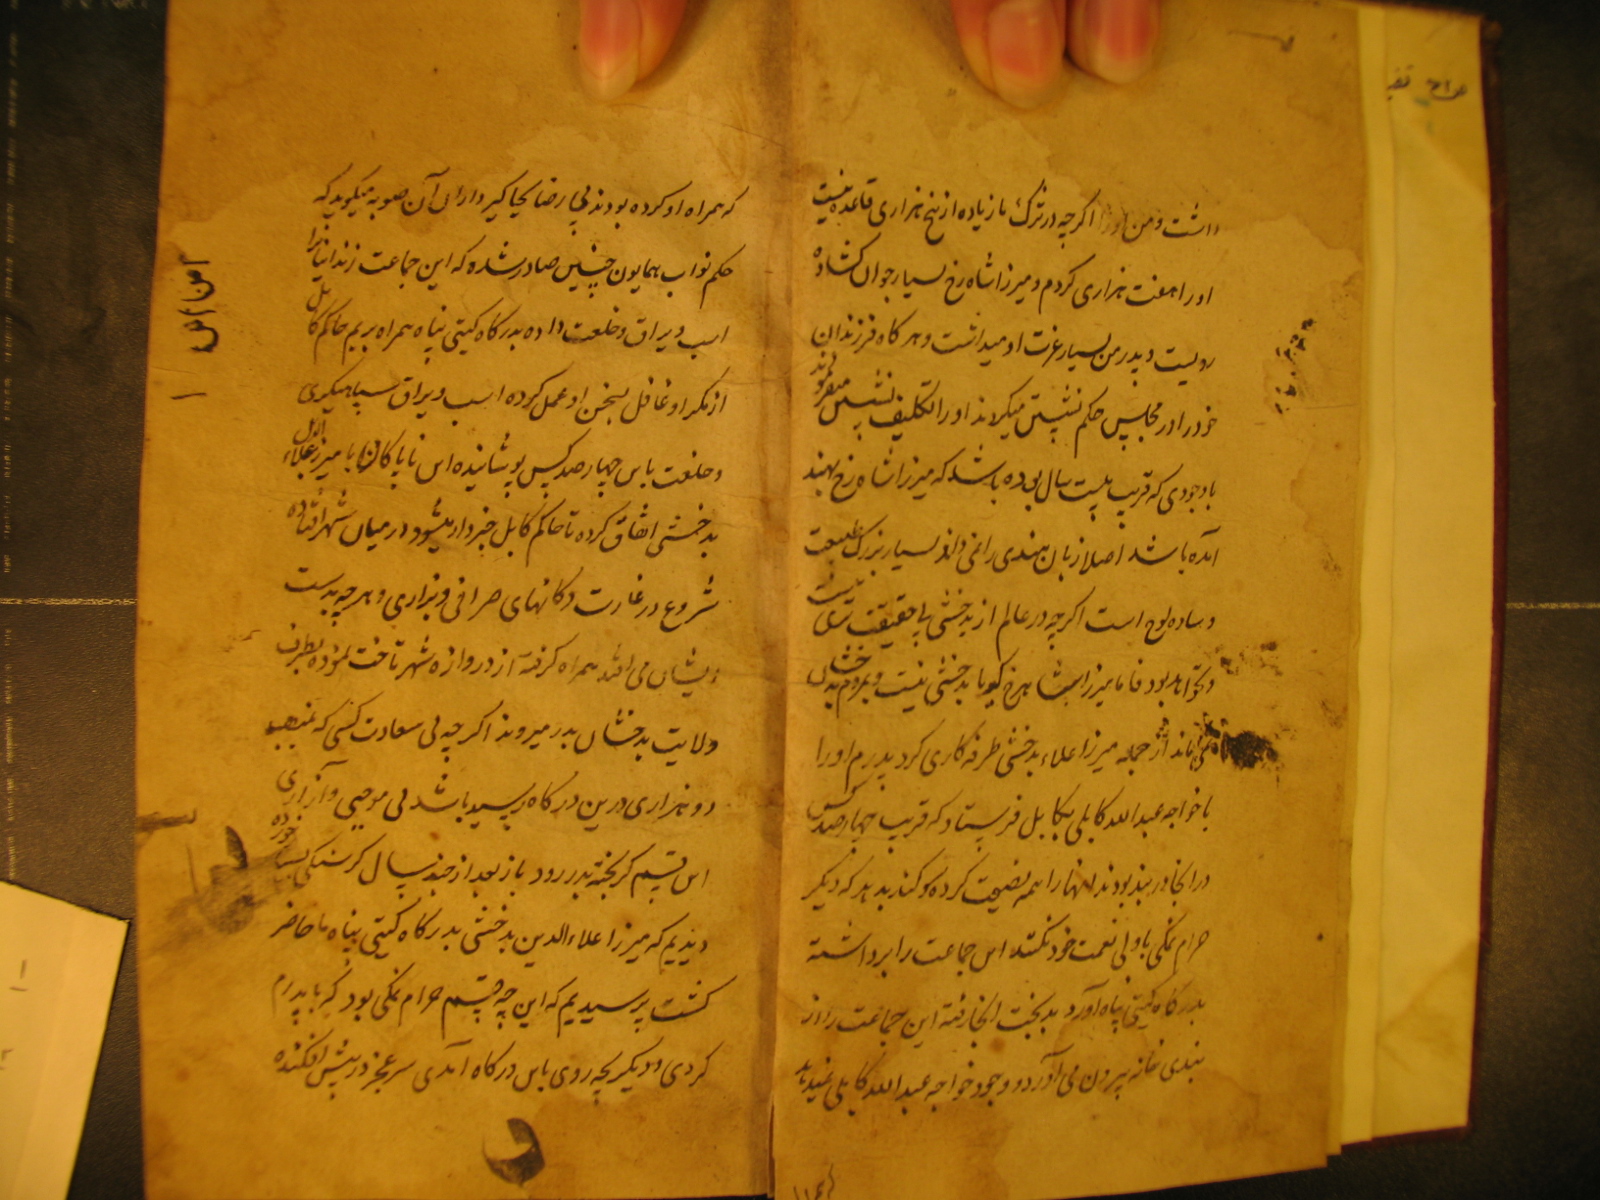 داشت و من او را اگرچه در ترک ما زیاده از پنج هزاری قاعده نیست
او را هفت هزاری کردم و میرزا شاه رخ بسیار جوان کشاده
رویست و پدر من بسیار عزت او میداشت و هر کاه فرزندان
خود را در مجلس حکم نشستن میکردند او را تکلیف نشستن میفرمودند
با وجودی که قریب بیست سال بوده باشد که میرزا شاه رخ بهند
آمده باشد اصلا زبان هندی را نمی داند بسیار بزرک طبیعت
و ساده لوح است اکرچه در عالم از بدخشی بی حقیقت تری نیست
و نخواهد بود فاما میرزا شاهرخ کویا بدخشی نیست و بمردم بدخشان
نمی ماند از جمله میرزا علاء بدخشی طرفه کاری کرد پدرم او را
با خواجه عبدالله کابلی بکابل فرستاد که قریب چهار صد کس
در آنجا در بند بودند آنها را هم نصیحت کرده سوکند بدهد که دیکر
حرام نمکی با ولی نعمت خود نکنند این جماعت را برداشته
بدرکاه کیتی پناه آورد بدبخت آنجا رفته این جماعت را از
بندی خانه بیرون می آورد و وجود خواجه عبدالله کابلی
که همراه او کرده بودند بی رضا بجاکیرداران آن صوبه میکوید که
حکم نواب همایون چنین صادر شده که این جماعت زندانیان را
اسب و یراق و خلعت داده بدرکاه کیتی پناه همراه بریم حاکم کابل
از مکر او غافل بسخن او عمل کرده اسب و یراق سپاهیکری
و خلعت باین چهار صد کس پوشانیده این ناپاکان با میرزا علاء الدین
بدخشی اتفاق کرده تا حاکم کابل خبردار میشود در میان شهر افتاده
شروع در غارت دکانهای صرافی و بزازی و هر چه بدست
ایشان می افتد همراه کرفته از دروازه شهر تاخت نموده بطرف
ولایت بدخشان بدر میروند اکرچه بی سعادت کسی که بمنصب
دو هزاری درین درکاه رسیده باشد بی موجبی و آزاری
این قسم کریخته بدر رود باز بعد از چند سال کرسنکی بسیار خورده
دیدیم که میرزا علاءالدین بدخشی بدرکاه کیتی پناه ما حاضر
کشت پرسیدیم که این چه قسم حرام نمکی بود که با پدرم
کردی و دیکر بچه روی باین درکاه آمدی سر عجز در پیش افکنده